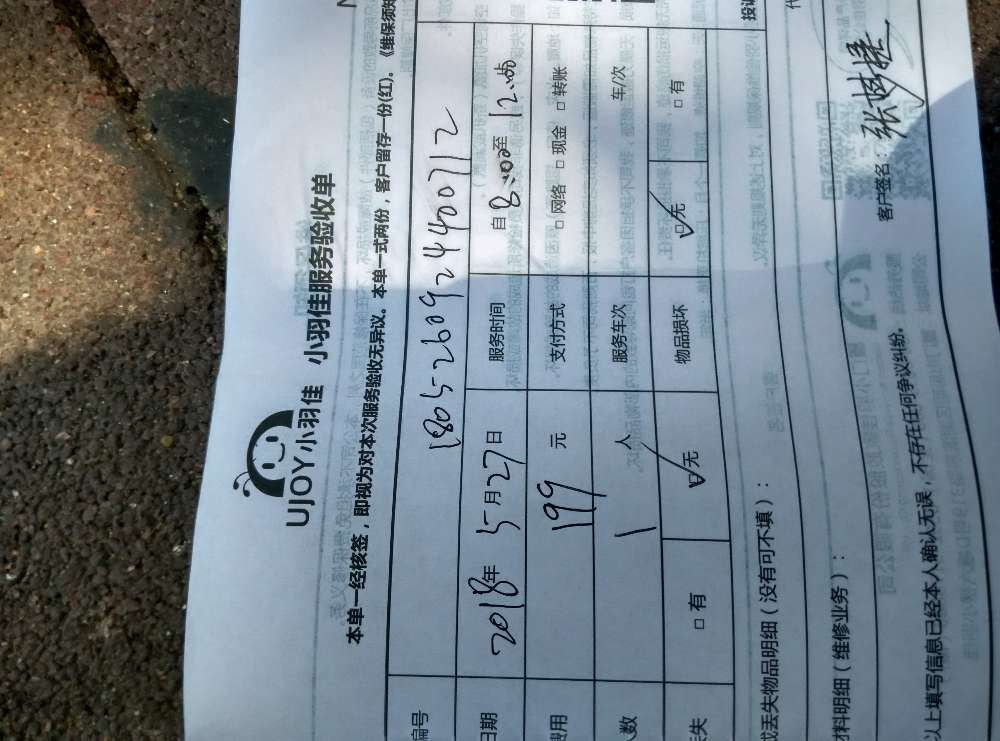 UJOY小羽佳 小羽佳服务验收单
本单一经核签，即视为对本次服务验收无异议。本单一式两份，客户留存一份(红)。《维保须知
编号 1805260924400112
日期 2018年5月27日 服务时间 自8:00至12:00
费用 199元 支付方式 □网络 □现金 □转账
人数 1人 服务车次 车/次
丢失 □有 ☑无 物品损坏 ☑无 □有
或丢失物品明细（没有可不填）：
材料明细（维修业务）：
以上填写信息已经本人确认无误，不存在任何争议纠纷。 客户签名：